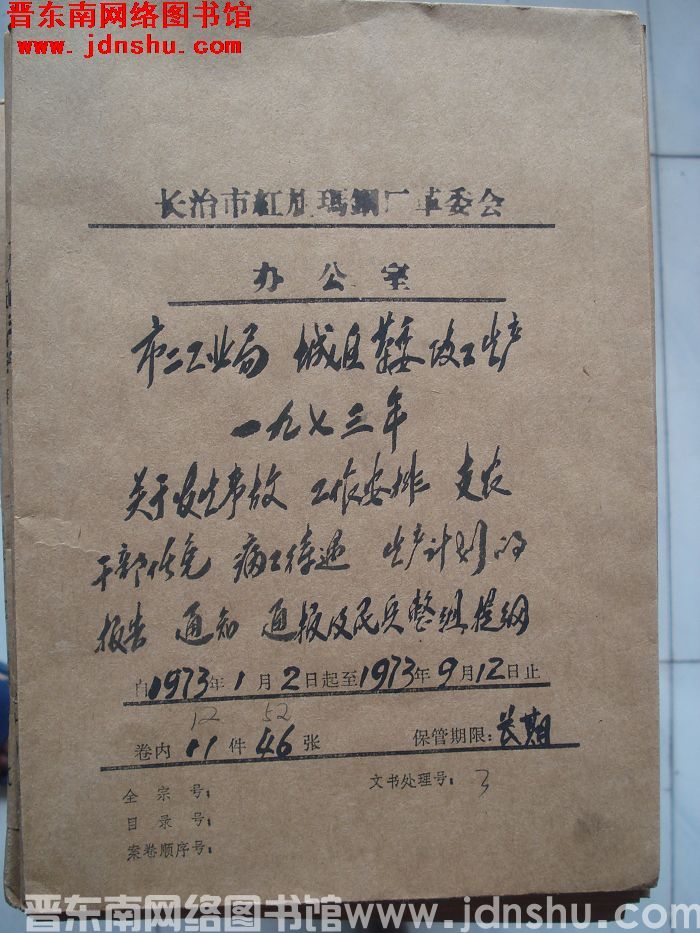 晋东南网络图书馆
www.jdnshu.com
长治市紅旗瑪鋼厂革委会
办公室
市二工业局 城区 生产
一九七三年
关于发生事故 工作安排 支农
干部任免 病工待遇 生产计划的
报告 通知 通报及民兵整组提纲
自1973年1月2日起至1973年9月12日止
12 52
卷内11件46张 保管期限:长期
全宗号: 文书处理号:3
目录号:
案卷顺序号:
晋东南网络图书馆 www.jdnshu.com